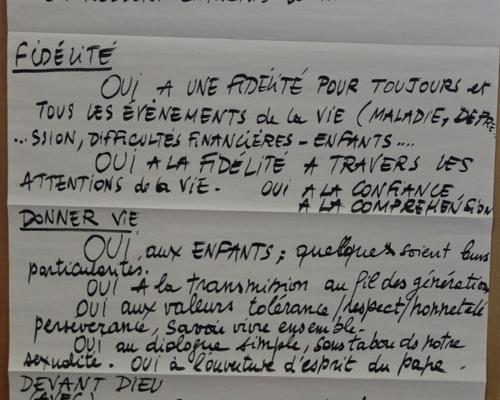 FIDÉLITÉ
OUI A UNE FIDÉLITÉ POUR TOUJOURS et
TOUS LES ÉVÈNEMENTS de la VIE (MALADIE, DÉPRE
...SSION, DIFFICULTÉS FINANCIÈRES - ENFANTS ....
OUI A LA FIDELITÉ A TRAVERS LES
ATTENTIONS de la VIE. OUI A LA CONFIANCE
A LA COMPREHENSION
DONNER VIE
OUI, aux ENFANTS; quelques soient leurs
particularités.
OUI A la transmission au fil des génération
OUI aux valeurs tolérance/respect/honnêteté
perseverance, savoir vivre ensemble.
OUI au dialogue simple, sous tabou de notre
sexualité. OUI à l'ouverture d'esprit du pape.
DEVANT DIEU
(AVEC)